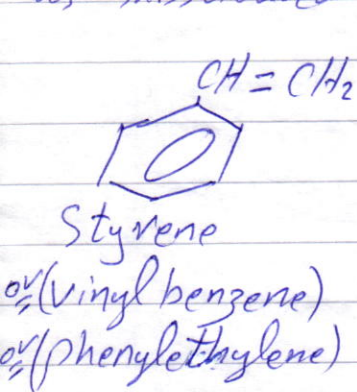 CH=CH₂
Styrene
or (vinyl benzene)
or (phenylethylene)